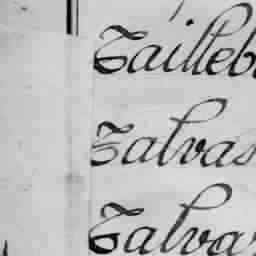 Tailleb
Talvas
Talvar